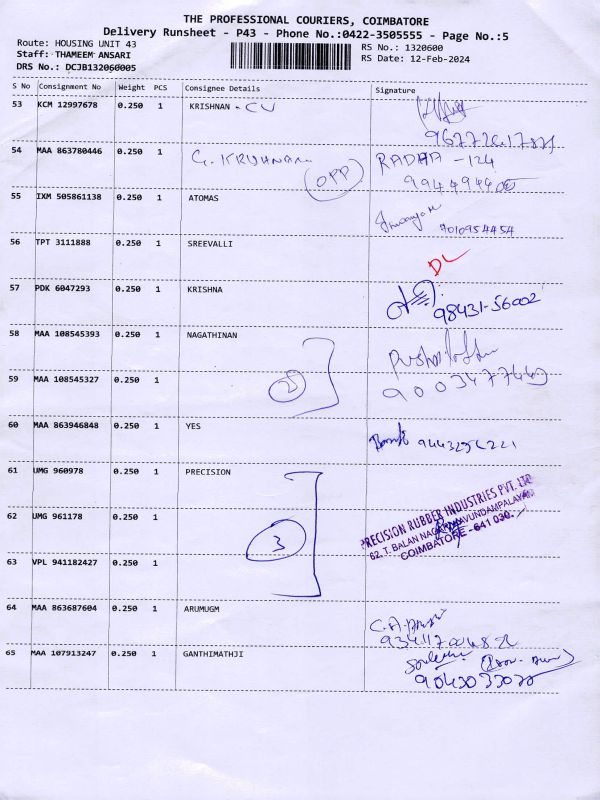 THE PROFESSIONAL COURIERS, COIMBATORE
Delivery Runsheet - P43 - Phone No.:0422-3505555 - Page No.:5
Route: HOUSING UNIT 43
Staff: THAMEEM ANSARI
DRS No.: DCJB132060005
RS No.: 1320600
RS Date: 12-Feb-2024
S No Consignment No Weight PCS Consignee Details Signature
53 KCM 12997678 0.250 1 KRISHNAN - CV
54 MAA 863780446 0.250 1 G. KRISHNAN (OPP) RADHA - 124
55 IXM 505861138 0.250 1 ATOMAS
7010954454
56 TPT 3111888 0.250 1 SREEVALLI DL
57 PDK 6047293 0.250 1 KRISHNA
98431-56002
58 MAA 108545393 0.250 1 NAGATHINAN
59 MAA 108545327 0.250 1
9003477449
60 MAA 863946848 0.250 1 YES
61 UMG 960978 0.250 1 PRECISION
62 UMG 961178 0.250 1 3
PRECISION RUBBER INDUSTRIES PVT. LTD
62, T. BALAN NAGAR, KAVUNDAMPALAYAM
COIMBATORE - 641 030.
63 VPL 941182427 0.250 1
64 MAA 863687604 0.250 1 ARUMUGM
65 MAA 107913247 0.250 1 GANTHIMATHJI